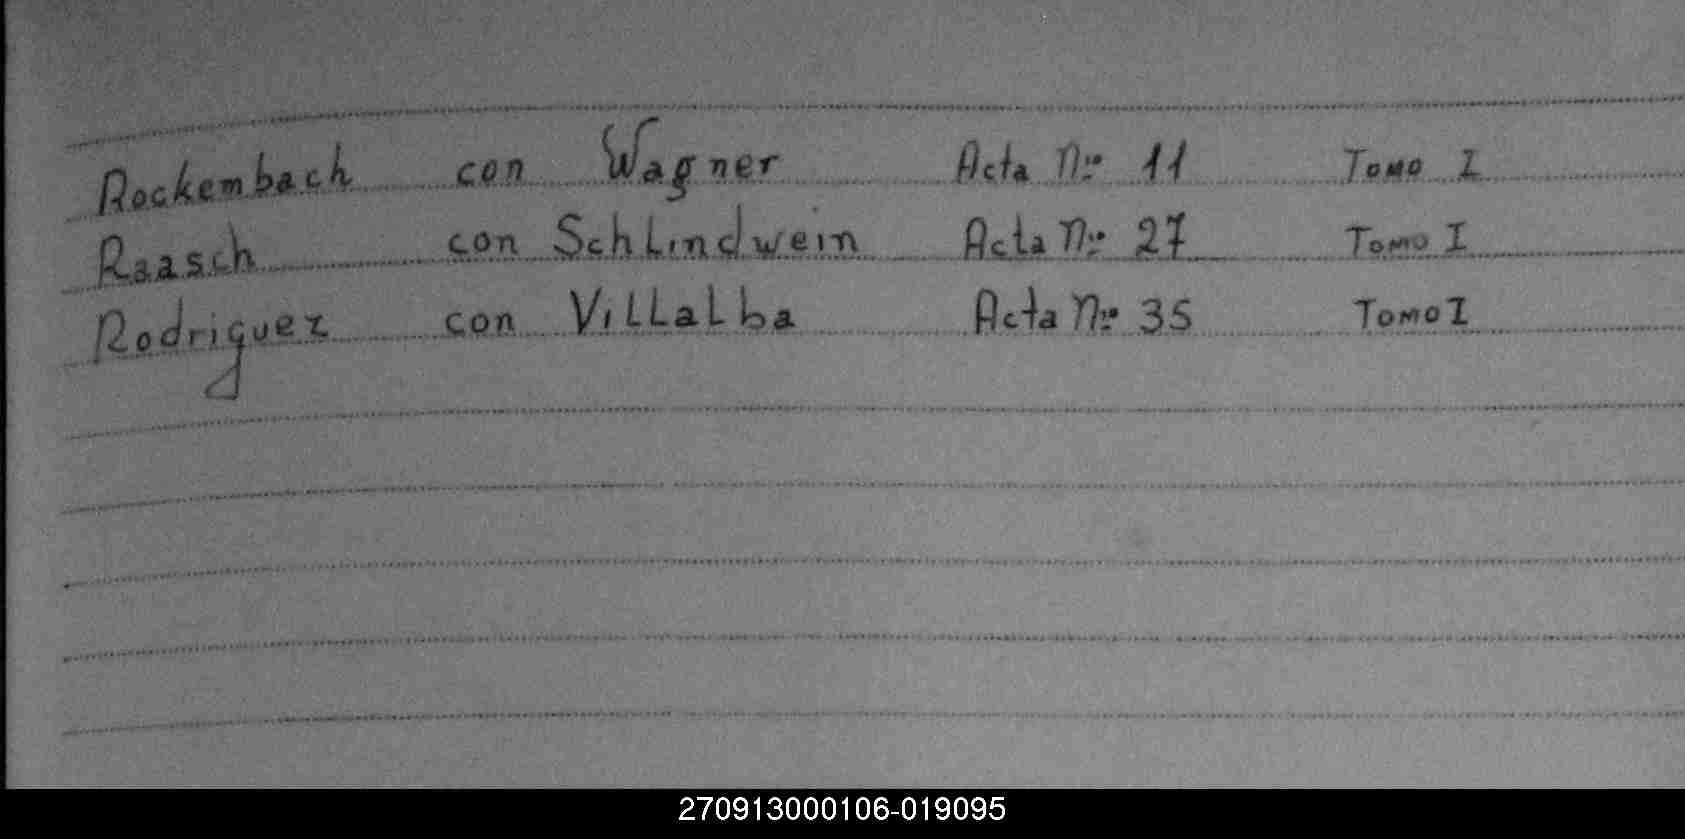 Rockembach con Wagner Acta Nº 11 Tomo I
Raasch con Schlindwein Acta Nº 27 Tomo I
Rodriguez con Villalba Acta Nº 35 Tomo I
270913000106-019095